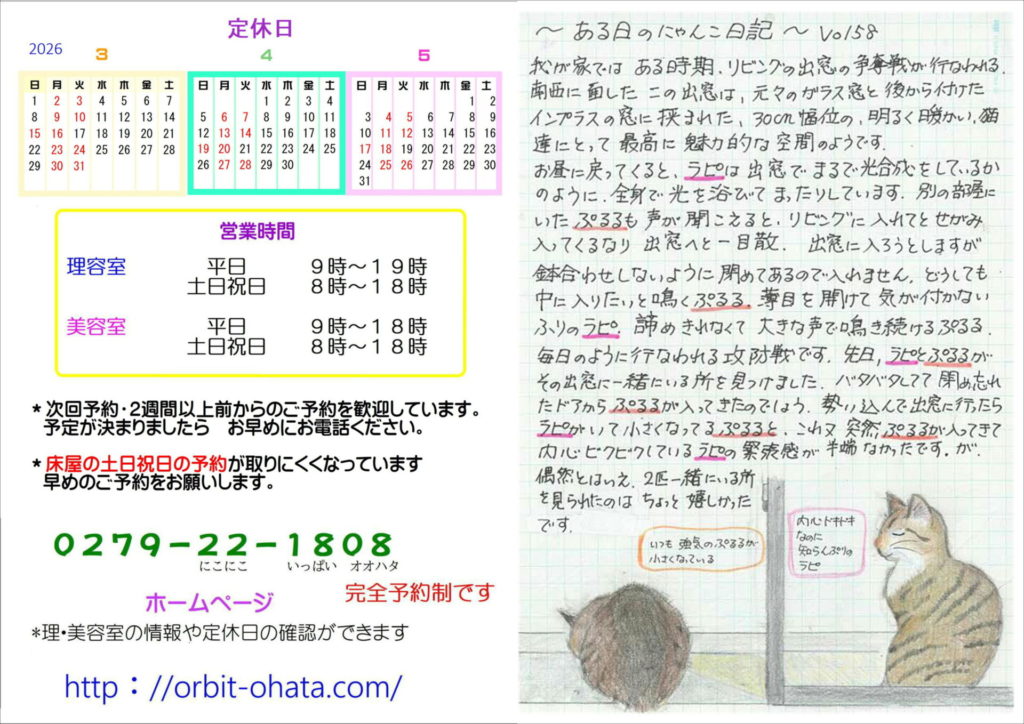 定休日
2026
3
4
5
日 月 火 水 木 金 土
1 2 3 4 5 6 7
8 9 10 11 12 13 14
15 16 17 18 19 20 21
22 23 24 25 26 27 28
29 30 31
日 月 火 水 木 金 土
1 2 3 4
5 6 7 8 9 10 11
12 13 14 15 16 17 18
19 20 21 22 23 24 25
26 27 28 29 30
日 月 火 水 木 金 土
1 2
3 4 5 6 7 8 9
10 11 12 13 14 15 16
17 18 19 20 21 22 23
24 25 26 27 28 29 30
31
営業時間
理容室 平日 9時～19時
土日祝日 8時～18時
美容室 平日 9時～18時
土日祝日 8時～18時
*次回予約・2週間以上前からのご予約を歓迎しています。
予定が決まりましたら お早めにお電話ください。
*床屋の土日祝日の予約が取りにくくなっています
早めのご予約をお願いします。
0279-22-1808
にこにこ いっぱい オオハタ
完全予約制です
ホームページ
*理・美容室の情報や定休日の確認ができます
http：//orbit-ohata.com/
～ ある日のにゃんこ日記 ～ Vol58
我が家では ある時期、リビングの出窓の争奪戦が行なわれる。
南西に面した この出窓は、元々のガラス窓と後から付けた
インプラスの窓に 挟まれた、30cm幅位の、明るく暖かい、猫
達にとって 最高に 魅力的な空間のようです。
お昼に戻ってくると、ラピは出窓で まるで光合成をしているか
のように、全身で光を浴びて まったりしています。別の部屋に
いた ぷるるも 声が聞こえると、リビングに入れてとせがみ
入ってくるなり 出窓へと一目散。 出窓に入ろうとしますが
鉢合わせしないように 閉めてあるので入れません。どうしても
中に入りたいと鳴く ぷるる。薄目を開けて 気が付かない
ふりのラピ。諦めきれなくて 大きな声で鳴き続けるぷるる。
毎日のように行なわれる攻防戦です。先日、ラピとぷるるが
その出窓に一緒にいる所を見つけました。バタバタしてて 閉め忘れ
たドアから ぷるるが入ってきたのでしょう。勢い込んで出窓に行ったら
ラピがいて小さくなってる ぷるると、これ又 突然 ぷるるが入ってきて
内心ビクビクしている ラピの緊張感が 半端なかったです。が、
偶然とはいえ、2匹一緒にいる所
を見られたのは ちょっと 嬉しかった
です。
いつも 強気のぷるるが
小さくなっている
内心ドキドキ
なのに
知らんぷりの
ラピ